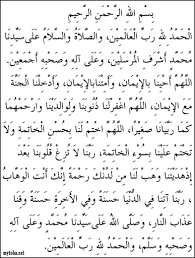 بِسْمِ اللهِ الرَّحْمَنِ الرَّحِيْمِ
الْحَمْدُ لِلَّهِ رَبِّ الْعَالَمِيْنَ، وَالصَّلَاةُ وَالسَّلَامُ عَلَى سَيِّدِنَا
مُحَمَّدٍ أَشْرَفِ الْمُرْسَلِيْنَ، وَعَلَى آلِهِ وَصَحْبِهِ أَجْمَعِيْنَ.
اللَّهُمَّ أَحْيِنَا بِالْإِيْمَانِ، وَأَمِتْنَا بِالْإِيْمَانِ، وَأَدْخِلْنَا الْجَنَّةَ
مَعَ الْإِيْمَانِ، اللَّهُمَّ اغْفِرْ لَنَا ذُنُوْبَنَا وَلِوَالِدَيْنَا وَارْحَمْهُمَا
كَمَا رَبَّيَانَا صَغِيْرًا، اللَّهُمَّ اخْتِمْ لَنَا بِحُسْنِ الْخَاتِمَةِ وَلَا
تَخْتِمْ عَلَيْنَا بِسُوْءِ الْخَاتِمَةِ، رَبَّنَا لَا تُزِغْ قُلُوْبَنَا بَعْدَ
إِذْ هَدَيْتَنَا وَهَبْ لَنَا مِنْ لَدُنْكَ رَحْمَةً إِنَّكَ أَنْتَ الْوَهَّابُ
، رَبَّنَا آتِنَا فِي الدُّنْيَا حَسَنَةً وَفِي الْآخِرَةِ حَسَنَةً وَقِنَا
عَذَابَ النَّارِ، وَصَلَّى اللهُ عَلَى سَيِّدِنَا مُحَمَّدٍ وَعَلَى آلِهِ
وَصَحْبِهِ وَسَلَّمَ، وَالْحَمْدُ لِلَّهِ رَبِّ الْعَالَمِيْنَ.